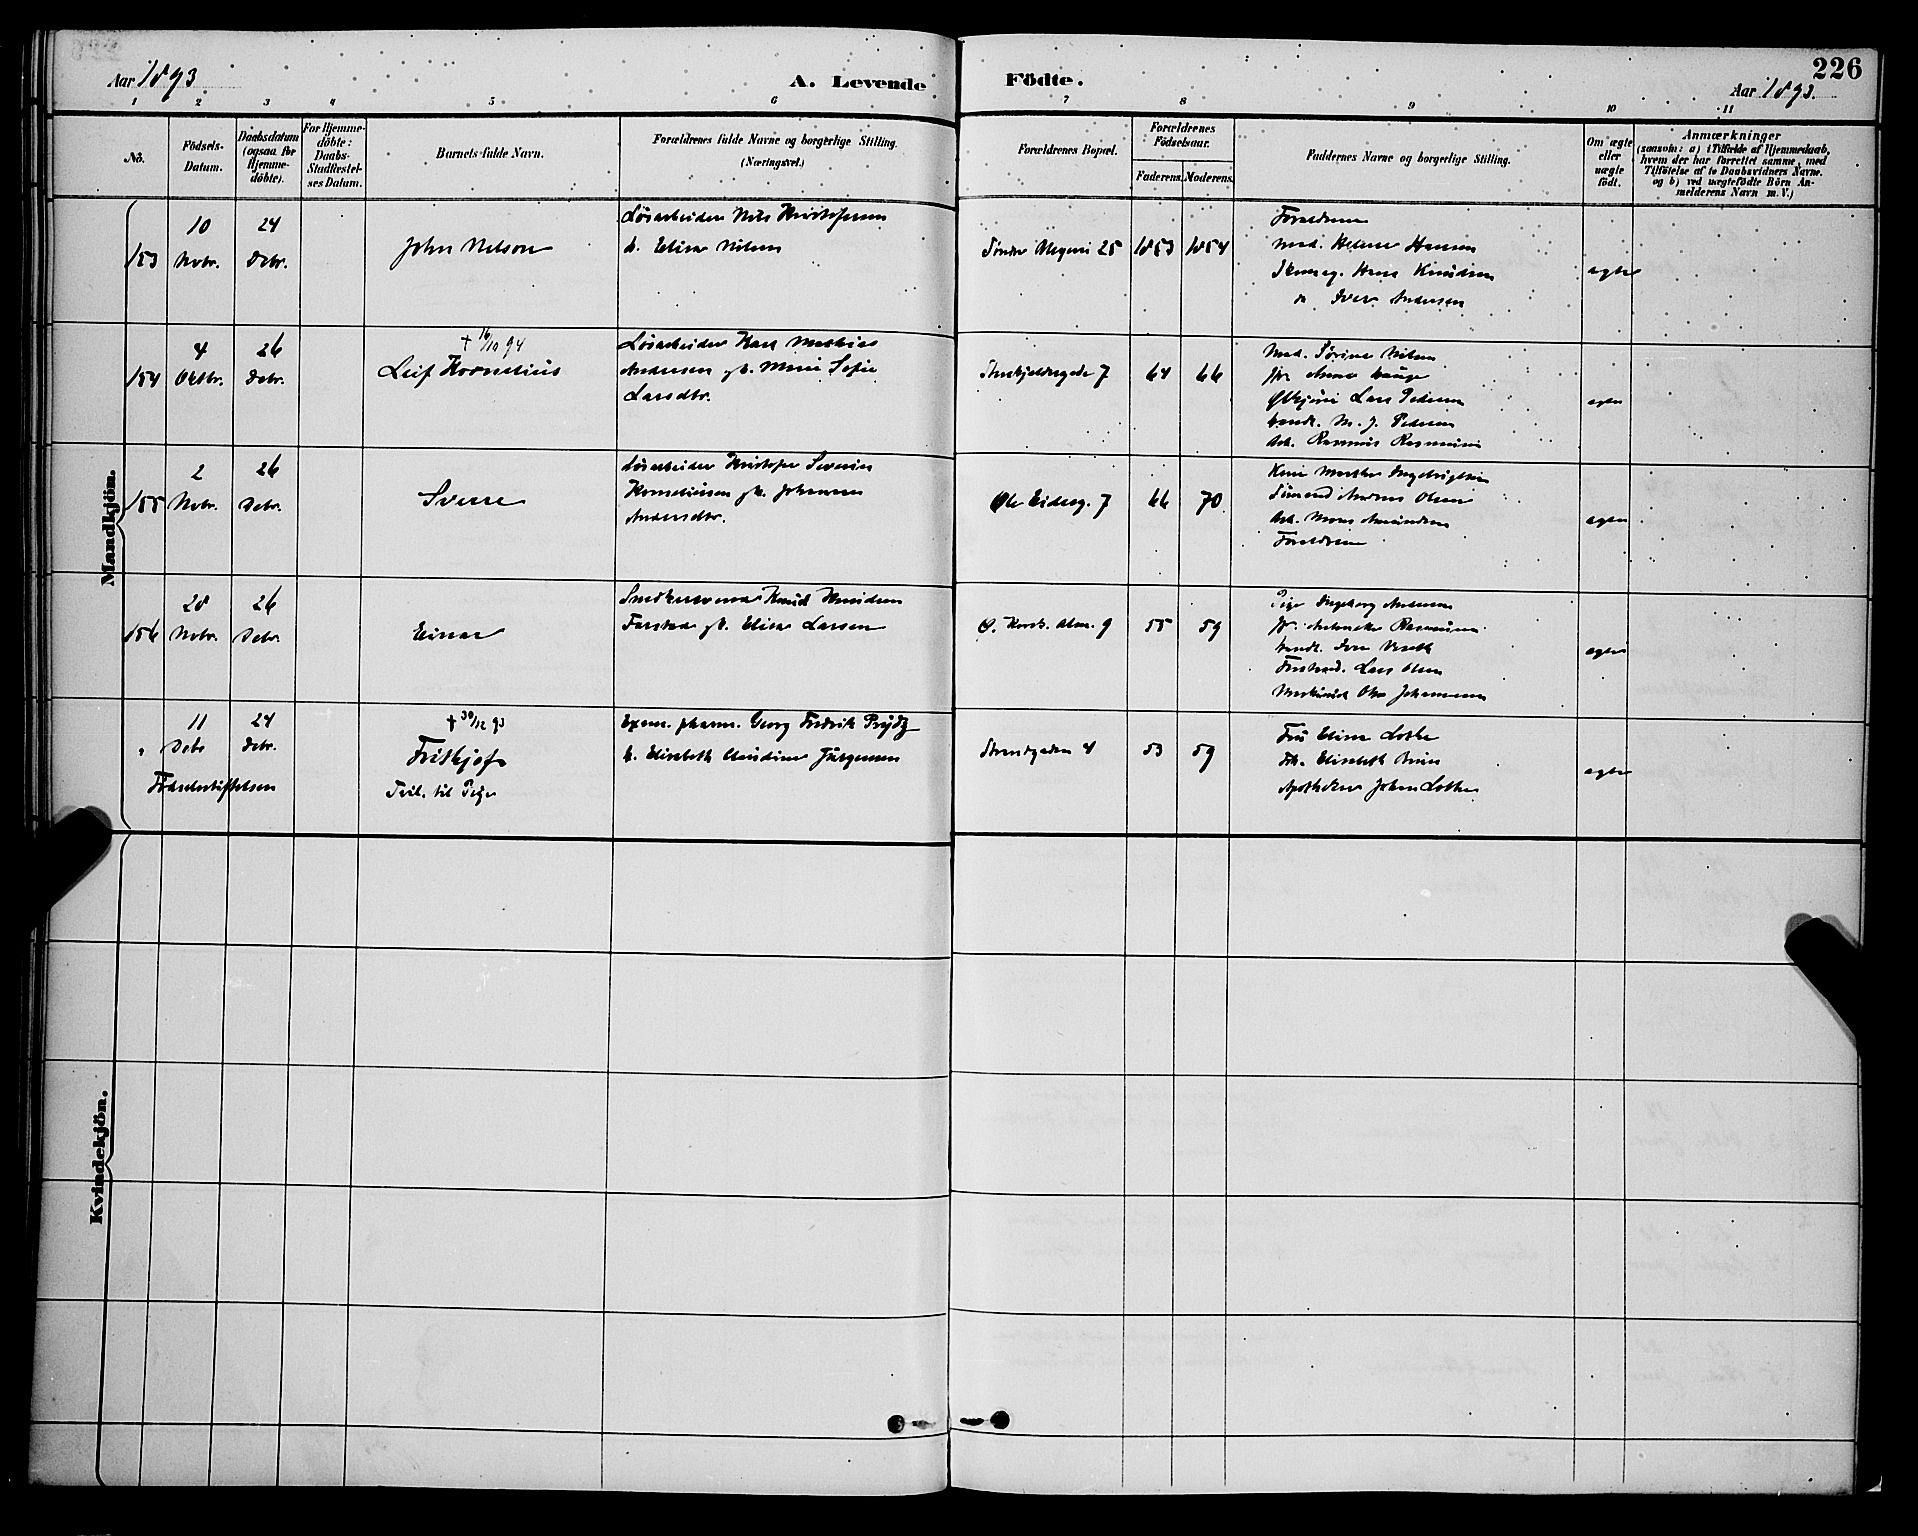 Aar 1893
A. Levende
Födte.
226
Aar 1893.
1 2 3 4 5 6 7 8 9 10 11
No.
Födsels-Datum.
Daabsdatum (ogsaa for Hjemme-döbte).
For Hjemme-döbte: Daabs-Stadfæstel-ses Datum.
Barnets fulde Navn.
Forældrenes fulde Navne og borgerlige Stilling.
(Næringsvei.)
Forældrenes Bopæl.
Forældrenes Födselsaar.
Faderens. Moderens.
Faddernes Navne og borgerlige Stilling.
Om ægte eller uægte födt.
Anmærkninger
(saasom: a) i Tilfælde af Hjemmedaab,
hvem der har forrettet samme, med
Tilföielse af to Daabsvidners Navne.
og b) ved uægtefödte Börn An-
melderens Navn m. V.)
Mandkjön.
153
10 Novbr.
24 Debr.
John Nelson
Løsarbeider Nils Kristofersen
h. Elisa Nilsen
25
1853 1854
Forældrene
Mad. Helene Hansen
Hans Knudsen
Iver Andersen
ægte
154
4 Oktbr.
26 Debr.
† 16/10 94
Leif Kornelius
Løsarbeider Karl Mathias
Andersen gh. Sofie
Larsdtr.
7
64 66
Mad. Sørine Nilsen
Anna Hauge
Lars Pedersen
M. J. Pedersen
Arb. Rasmus Rasmussen
ægte
155
2 Novbr.
26 Debr.
Sverre
Løsarbeider Kristofer Severin
Korneliussen gh. Johanna
Andersdtr.
7
66 70
Kone Marthe Ingebrigtsen
Olsen
Arb.
Forældrene
ægte
156
28 Novbr.
26 Debr.
Einar
Snedkersvend Knud Knudsen
Farstad gh. Elisa Larsen
9
55 59
Pige Ingeborg Andersen
Rasmussen
Iver
Lars Olsen
Johannessen
ægte
"
11 Debr
24 Debr.
Fødselsstiftelsen
† 30/12 93
Fritkjof
Tvil. til Pige
Exam. pharm. Georg Fredrik Prydz
h. Elisabeth Claudine Jürgensen
Strandgaden 4
53 59
Fru Elina Lothe
Frk. Elisabeth
Apotheker Johan Lothe
ægte
Kvindekjön.